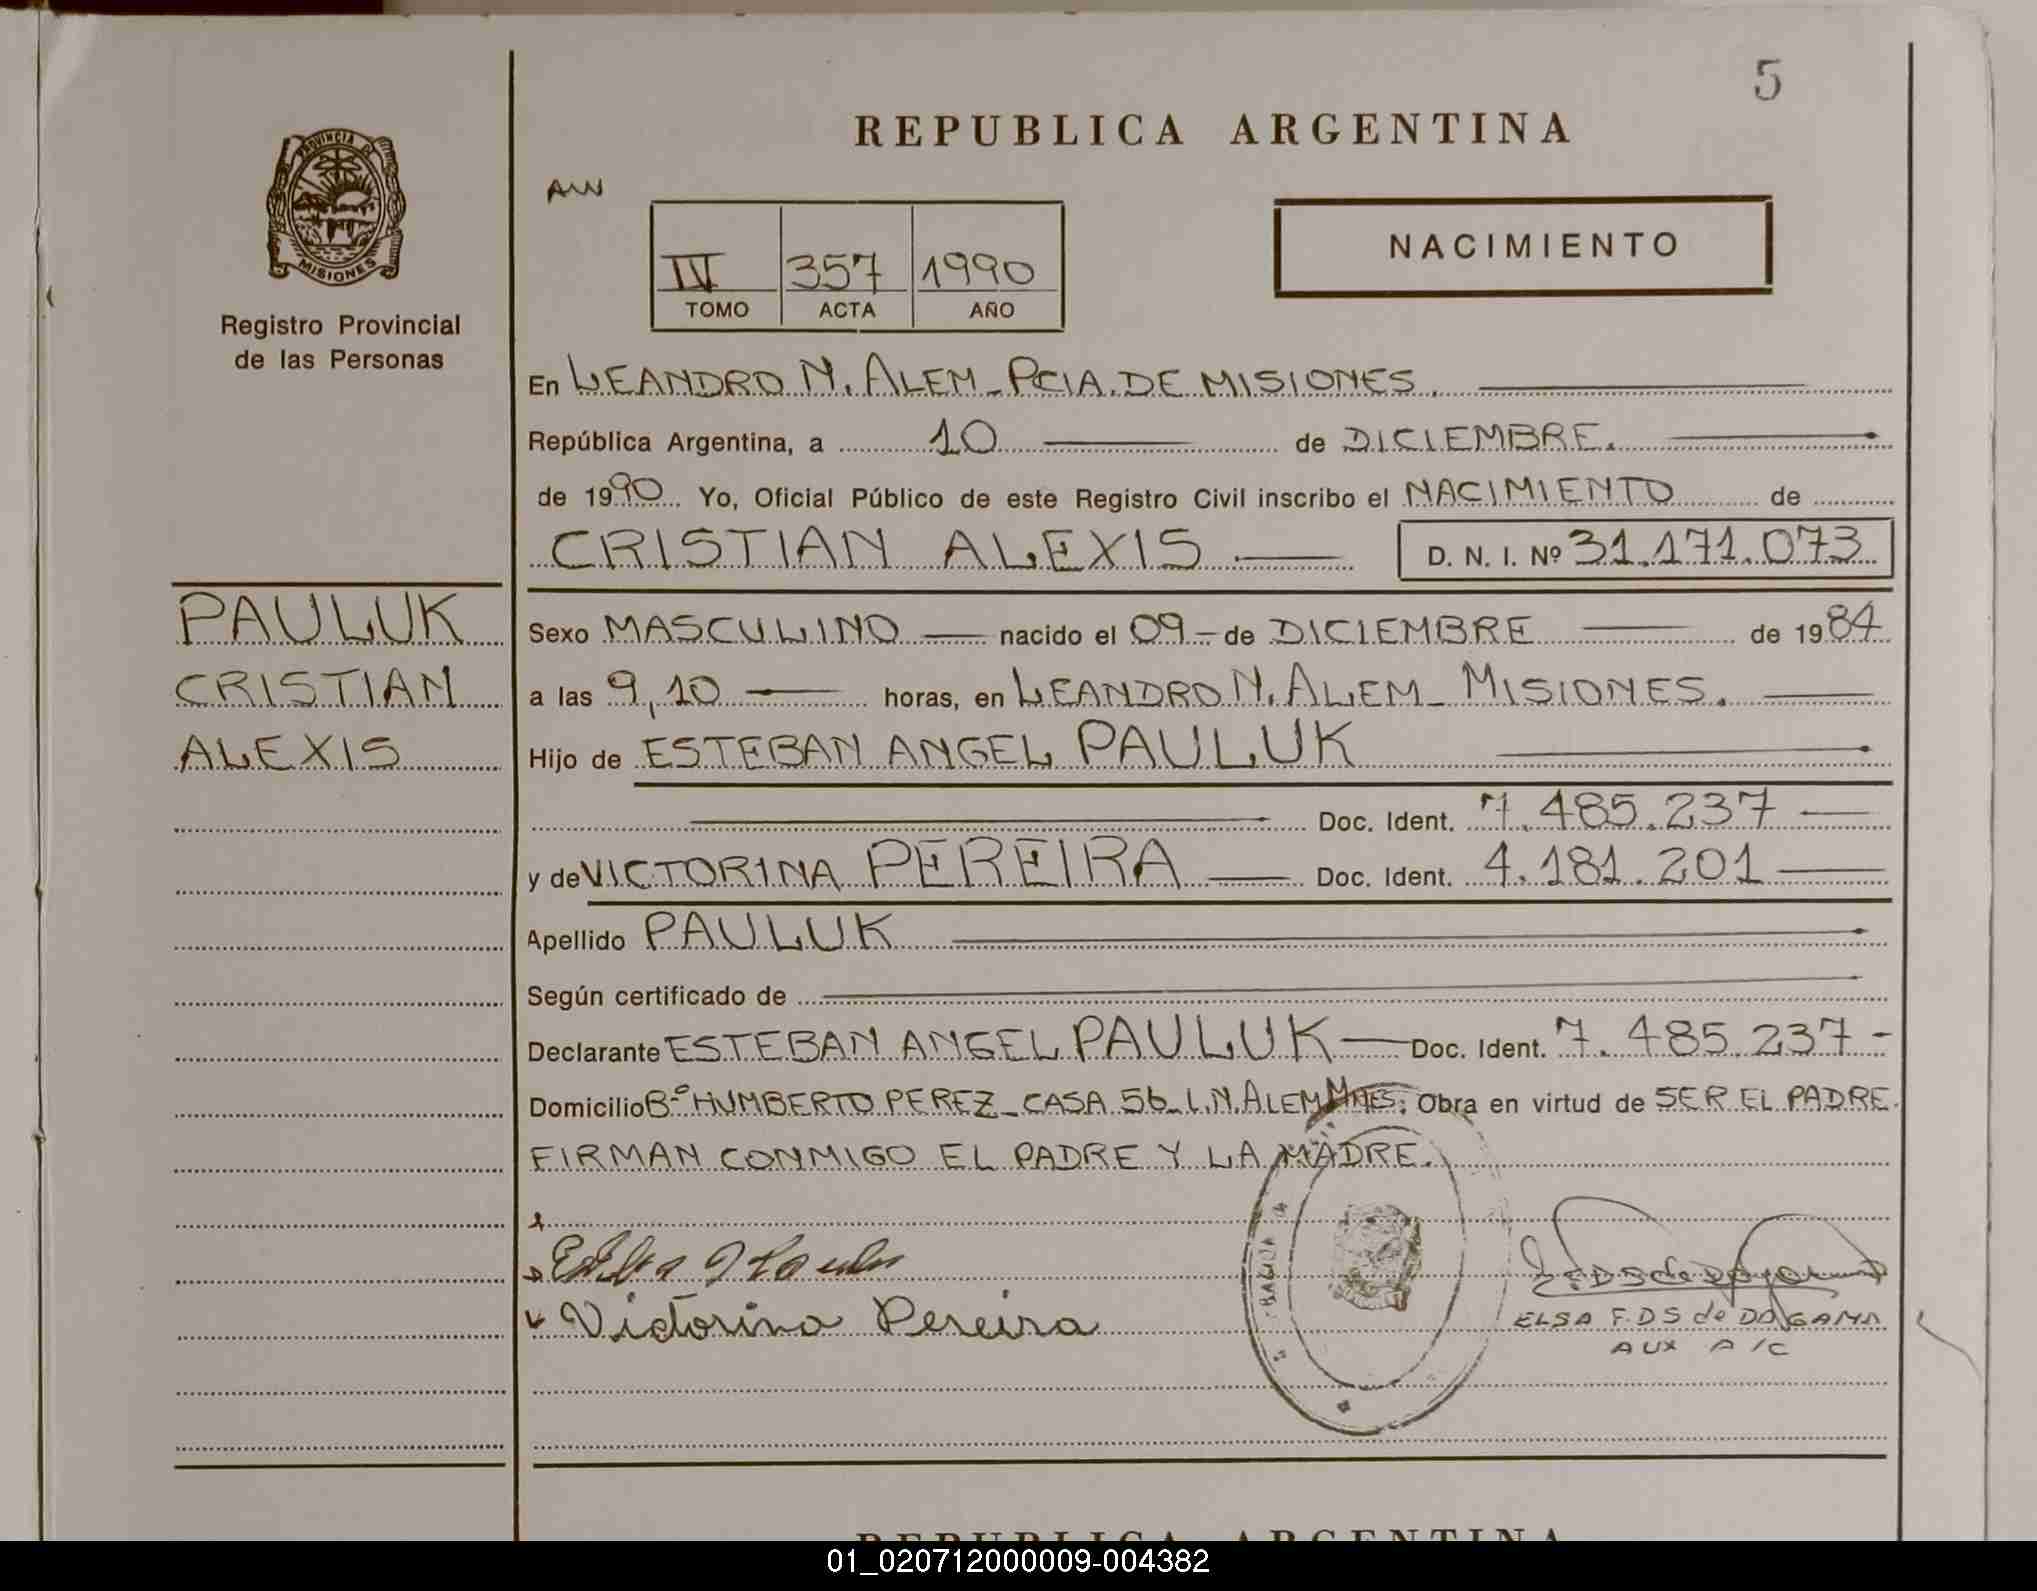 5
REPUBLICA ARGENTINA
PROVINCIA DE
MISIONES
Registro Provincial
de las Personas
AW
NACIMIENTO
IV 357 1990
TOMO ACTA AÑO
En LEANDRO N. ALEM - PCIA. DE MISIONES.
República Argentina, a 10 de DICIEMBRE.
de 1990 Yo, Oficial Público de este Registro Civil inscribo el NACIMIENTO de
CRISTIAN ALEXIS D. N. I. Nº 31.171.073
PAULUK
CRISTIAN
ALEXIS
Sexo MASCULINO nacido el 09 - de DICIEMBRE de 1984
a las 9,10 horas, en LEANDRO N. ALEM - MISIONES.
Hijo de ESTEBAN ANGEL PAULUK
Doc. Ident. 7.485.237
y de VICTORINA PEREIRA Doc. Ident. 4.181.201
Apellido PAULUK
Según certificado de
Declarante ESTEBAN ANGEL PAULUK Doc. Ident. 7.485.237 -
Domicilio Bº HUMBERTO PEREZ - CASA 56 - L.N. ALEM MNES. Obra en virtud de SER EL PADRE.
FIRMAN CONMIGO EL PADRE Y LA MADRE.
Victorina Pereira
ELSA F. DS de DA GAMA
AUX A/C
REPUBLICA ARGENTINA
01_020712000009-004382